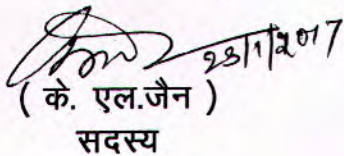 23/1/2017
( के. एल.जैन )
सदस्य